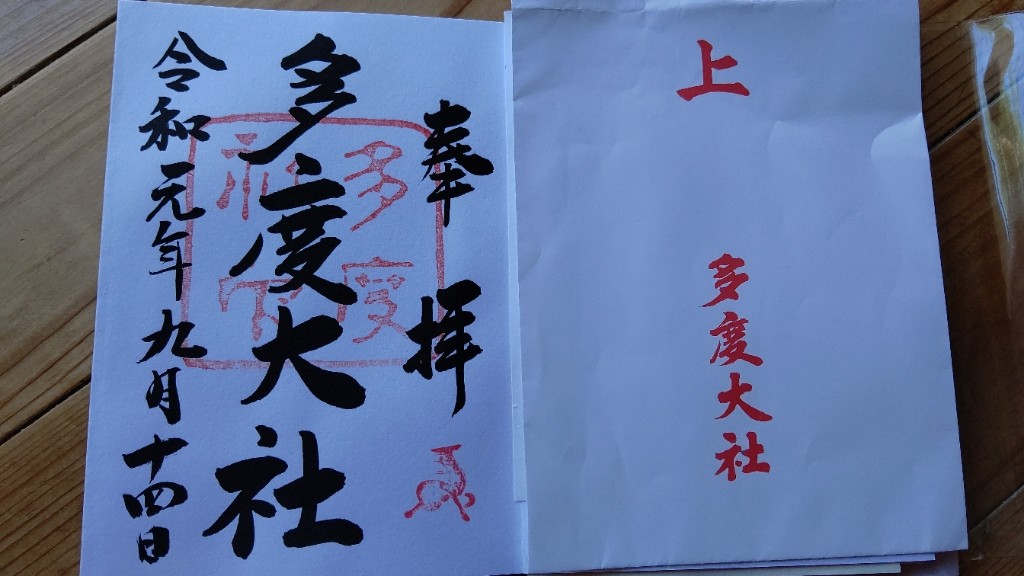 奉拝
多度大社
令和元年九月十四日
多度
社
上
多度大社